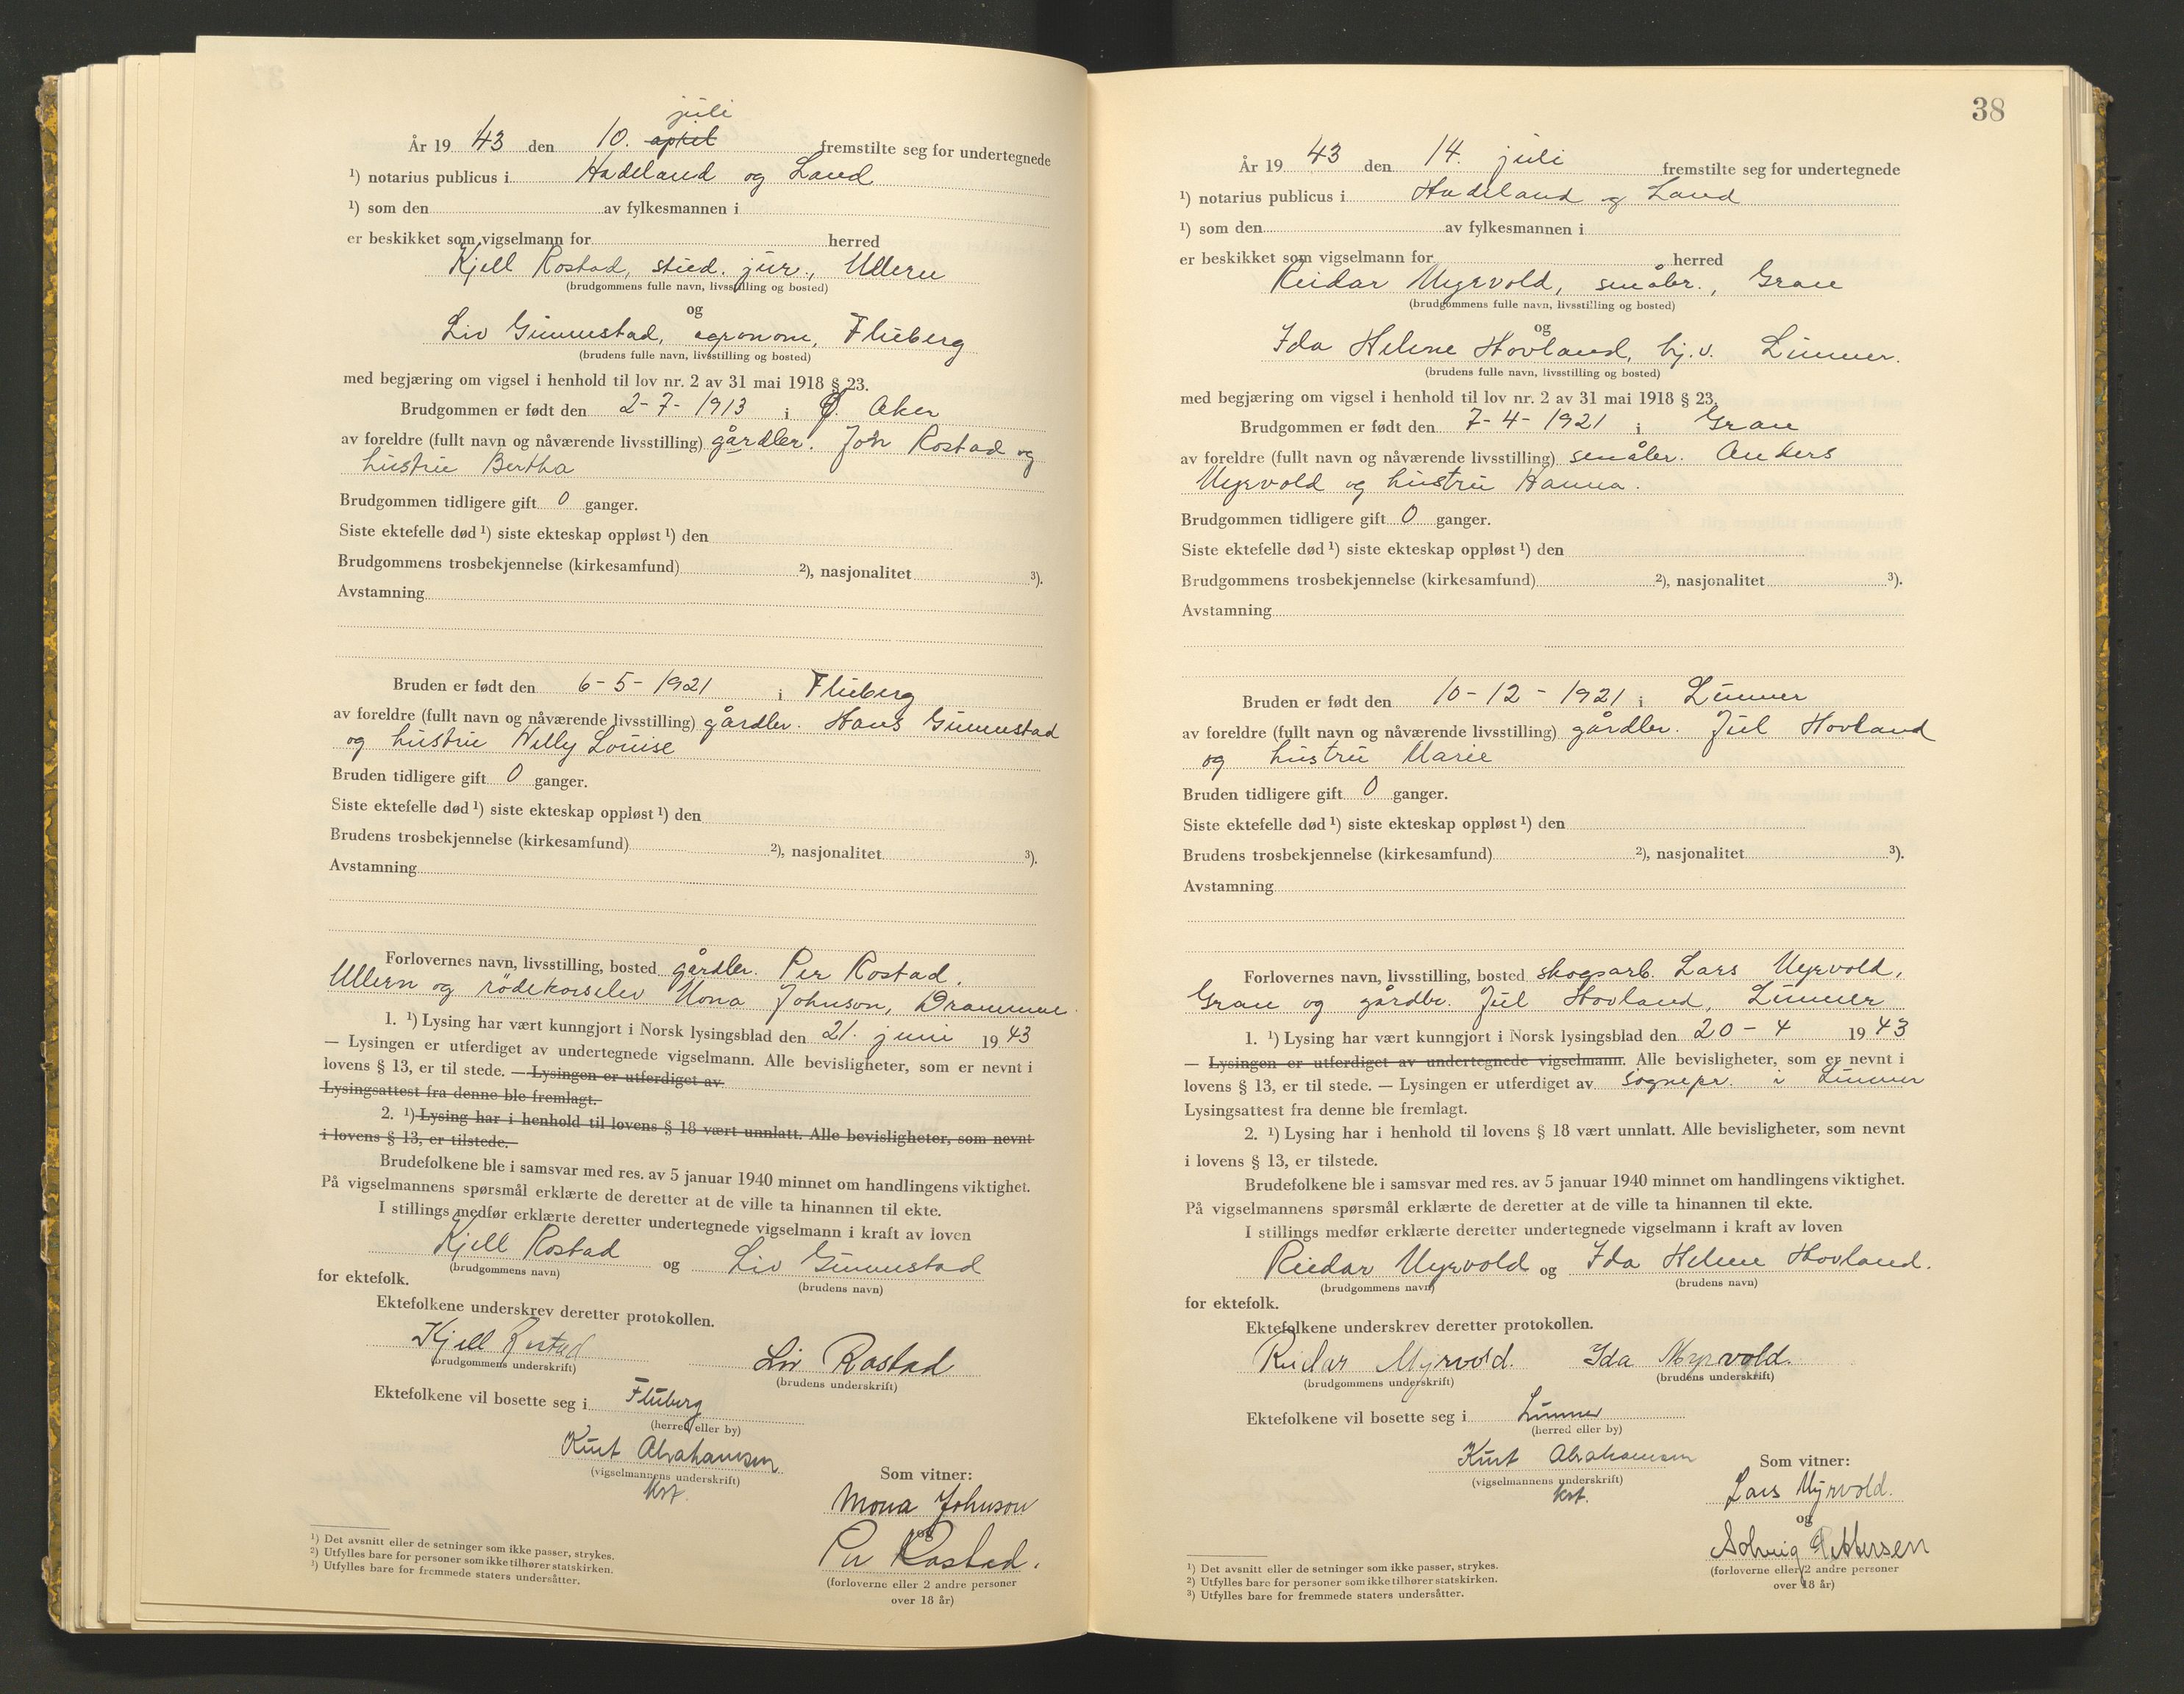 juli
År 19 43 den 10. april fremstilte seg for undertegnede
¹) notarius publicus i Hadeland og Land
¹) som den av fylkesmannen i
er beskikket som vigselmann for herred
Kjell Rostad, stud. jur., Ullern
(brudgommens fulle navn, livsstilling og bosted)
og
Liv Gunnustad, agronom, Fluberg
(brudens fulle navn, livsstilling og bosted)
med begjæring om vigsel i henhold til lov nr. 2 av 31 mai 1918 § 23.
Brudgommen er født den 2-7-1913 i Ø. Aker
av foreldre (fullt navn og nåværende livsstilling) gårdbr. John Rostad og
hustru Bertha
Brudgommen tidligere gift 0 ganger.
Siste ektefelle død ¹) siste ekteskap oppløst ¹) den
Brudgommens trosbekjennelse (kirkesamfund) ²), nasjonalitet ³).
Avstamning
Bruden er født den 6-5-1921 i Fluberg
av foreldre (fullt navn og nåværende livsstilling) gårdbr. Hans Gunnustad
og hustru Willy Louise
Bruden tidligere gift 0 ganger.
Siste ektefelle død ¹) siste ekteskap oppløst ¹) den
Brudens trosbekjennelse (kirkesamfund) ²), nasjonalitet ³).
Avstamning
Forlovernes navn, livsstilling, bosted gårdbr. Per Rostad,
Ullern og rödekorselev Mona Johnson, Drammen.
1. ¹) Lysing har vært kunngjort i Norsk lysingsblad den 21. juni 1943
— Lysingen er utferdiget av undertegnede vigselmann. Alle bevisligheter, som er nevnt i
lovens § 13, er til stede. — Lysingen er utferdiget av
Lysingsattest fra denne ble fremlagt.
2. ¹) Lysing har i henhold til lovens § 18 vært unnlatt. Alle bevisligheter, som nevnt
i lovens § 13, er tilstede.
Brudefolkene ble i samsvar med res. av 5 januar 1940 minnet om handlingens viktighet.
På vigselmannens spørsmål erklærte de deretter at de ville ta hinannen til ekte.
I stillings medfør erklærte deretter undertegnede vigselmann i kraft av loven
Kjell Rostad og Liv Gunnustad
(brudgommens navn) (brudens navn)
for ektefolk.
Ektefolkene underskrev deretter protokollen.
Kjell Rostad Liv Rostad
(brudgommens underskrift) (brudens underskrift)
Ektefolkene vil bosette seg i Fluberg
(herred eller by)
Kurt Abrahamsen
(vigselmannens underskrift)
kst.
Som vitner:
Mona Johnson
og
Per Rostad.
(forloverne eller 2 andre personer
over 18 år)
¹) Det avsnitt eller de setninger som ikke passer, strykes.
²) Utfylles bare for personer som ikke tilhører statskirken.
³) Utfylles bare for fremmede staters undersåtter.
38
År 19 43 den 14. juli fremstilte seg for undertegnede
¹) notarius publicus i Hadeland og Land
¹) som den av fylkesmannen i
er beskikket som vigselmann for herred
Reidar Myrvold, småbr., Gran
(brudgommens fulle navn, livsstilling og bosted)
og
Ida Helene Hovland, hj.v. Lunner.
(brudens fulle navn, livsstilling og bosted)
med begjæring om vigsel i henhold til lov nr. 2 av 31 mai 1918 § 23.
Brudgommen er født den 7-4-1921 i Gran
av foreldre (fullt navn og nåværende livsstilling) småbr. Anders
Myrvold og hustru Hanna.
Brudgommen tidligere gift 0 ganger.
Siste ektefelle død ¹) siste ekteskap oppløst ¹) den
Brudgommens trosbekjennelse (kirkesamfund) ²), nasjonalitet ³).
Avstamning
Bruden er født den 10-12-1921 i Lunner
av foreldre (fullt navn og nåværende livsstilling) gårdbr. Jul Hovland
og hustru Marie
Bruden tidligere gift 0 ganger.
Siste ektefelle død ¹) siste ekteskap oppløst ¹) den
Brudens trosbekjennelse (kirkesamfund) ²), nasjonalitet ³).
Avstamning
Forlovernes navn, livsstilling, bosted skogsarb. Lars Myrvold,
Gran og gårdbr. Jul Hovland, Lunner
1. ¹) Lysing har vært kunngjort i Norsk lysingsblad den 20-4 1943
— Lysingen er utferdiget av undertegnede vigselmann. Alle bevisligheter, som er nevnt i
lovens § 13, er til stede. — Lysingen er utferdiget av sognepr. i Lunner
Lysingsattest fra denne ble fremlagt.
2. ¹) Lysing har i henhold til lovens § 18 vært unnlatt. Alle bevisligheter, som nevnt
i lovens § 13, er tilstede.
Brudefolkene ble i samsvar med res. av 5 januar 1940 minnet om handlingens viktighet.
På vigselmannens spørsmål erklærte de deretter at de ville ta hinannen til ekte.
I stillings medfør erklærte deretter undertegnede vigselmann i kraft av loven
Reidar Myrvold og Ida Helene Hovland.
(brudgommens navn) (brudens navn)
for ektefolk.
Ektefolkene underskrev deretter protokollen.
Reidar Myrvold. Ida Myrvold.
(brudgommens underskrift) (brudens underskrift)
Ektefolkene vil bosette seg i Lunner
(herred eller by)
Kurt Abrahamsen
(vigselmannens underskrift)
kst.
Som vitner:
Lars Myrvold.
og
Solveig Pettersen
(forloverne eller 2 andre personer
over 18 år)
¹) Det avsnitt eller de setninger som ikke passer, strykes.
²) Utfylles bare for personer som ikke tilhører statskirken.
³) Utfylles bare for fremmede staters undersåtter.